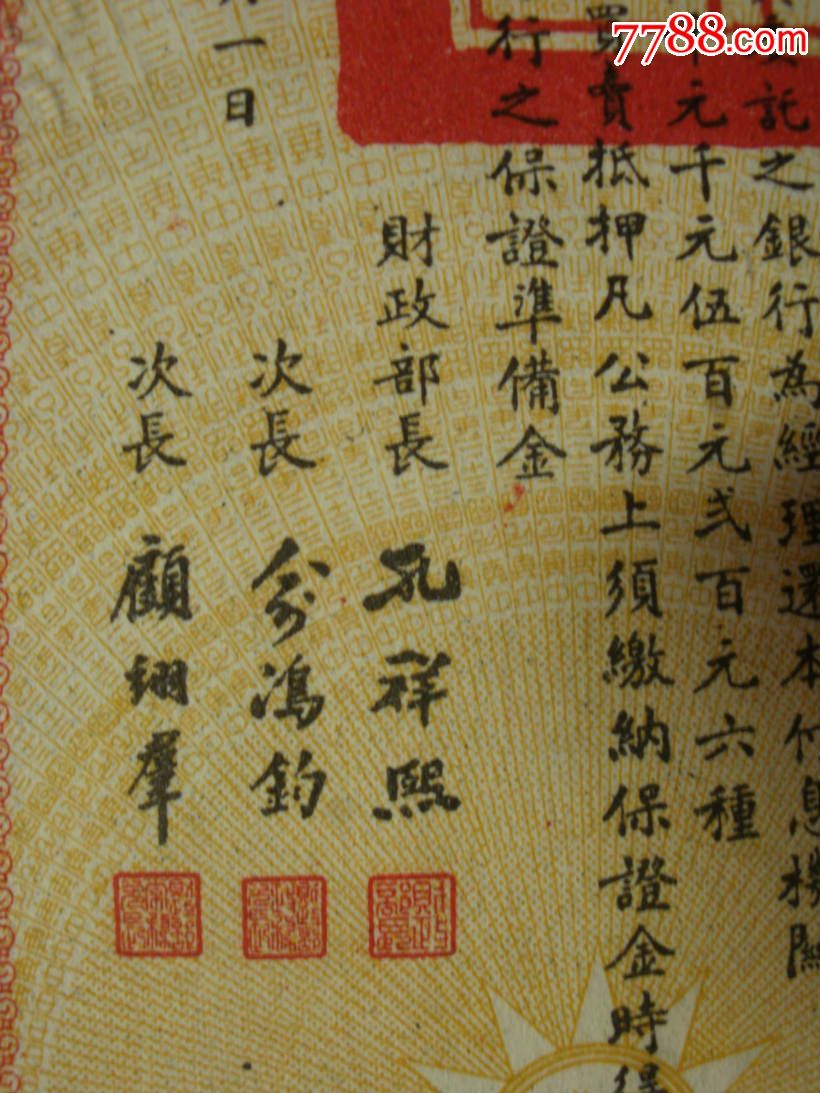 7788.com
託之銀行為經理還本付息機關
元千元伍百元弍百元六種
買賣抵押凡公務上須繳納保證金時得
行之保證準備金
財政部長 孔祥熙
次長 俞鴻鈞
次長 顧翊羣
一日